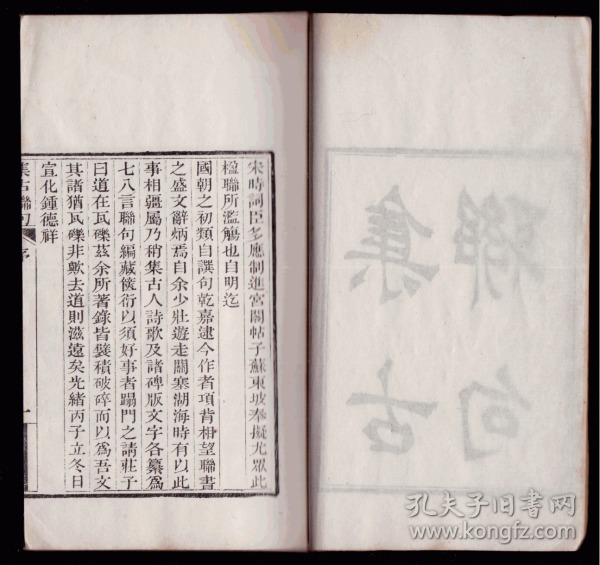 宋時詞臣多應制進宮閣帖子蘇東坡奉擬尤眾此
楹聯所濫觴也自明迄
國朝之初類自譔句乾嘉逮今作者項背相望聯書
之盛文辭炳焉自余少壯遊走關塞湖海時有以此
事相彊屬乃稍集古人詩歌及諸碑版文字各纂爲
七八言聯句編藏篋衍以須好事者踢門之請莊子
曰道在瓦礫茲余所著錄皆襞積破碎而以爲吾文
其諸猶瓦礫非歟去道則滋遠矣光緒丙子立冬日
宣化鍾德祥
集古聯句
序
一
集古
聯句
孔夫子旧书网
www.kongfz.com